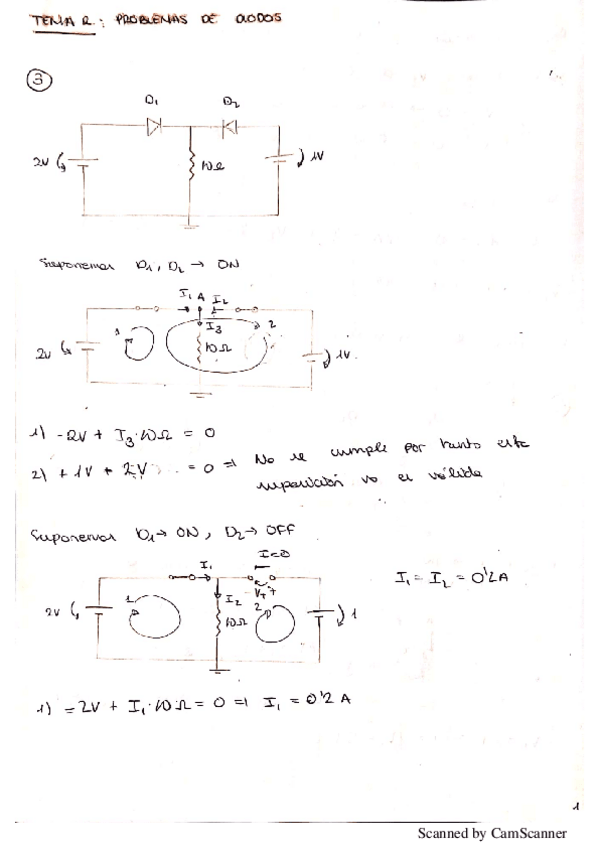 TEMA 2: PROBLEMAS DE DIODOS
3
D1 D2
2V 10Ω 1V
Suponemos D1, D2 → ON
I1 A I2
1 I3 2
2V 10Ω 1V.
1) -2V + I3·10Ω = 0
2) +1V + 2V = 0 ⇒ No se cumple por tanto esta
suposición no es válida
Suponemos D1 → ON, D2 → OFF
I=0
I1
I1 = I2 = 0'2A
- VT +
2V 1 I2 2 1
10Ω
1) -2V + I1·10Ω = 0 ⇒ I1 = 0'2 A
1
Scanned by CamScanner